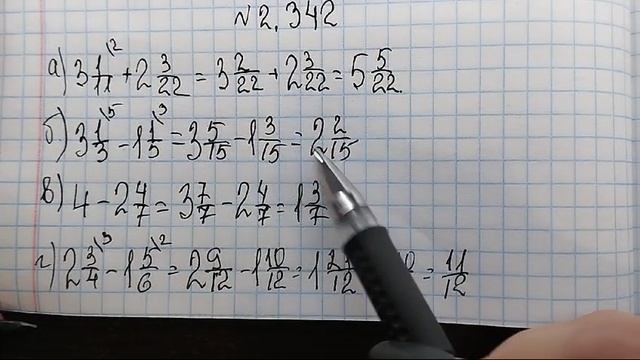 №2.342
а) 3 1/11 \2 + 2 3/22 = 3 2/22 + 2 3/22 = 5 5/22.
б) 3 1/3 \5 - 1 1/5 \3 = 3 5/15 - 1 3/15 = 2 2/15
в) 4 - 2 4/7 = 3 7/7 - 2 4/7 = 1 3/7
г) 2 3/4 \3 - 1 5/6 \2 = 2 9/12 - 1 10/12 = 1 /12 = 11/12